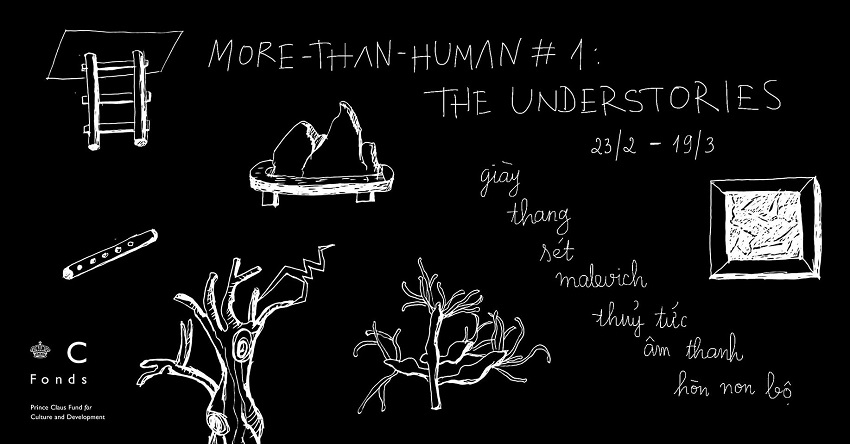 MORE-THAN-HUMAN # 1:
THE UNDERSTORIES
23/2 - 19/3
giày
thang
sét
malevich
thuỷ tức
âm thanh
hòn non bộ
C
Fonds
Prince Claus Fund for
Culture and Development